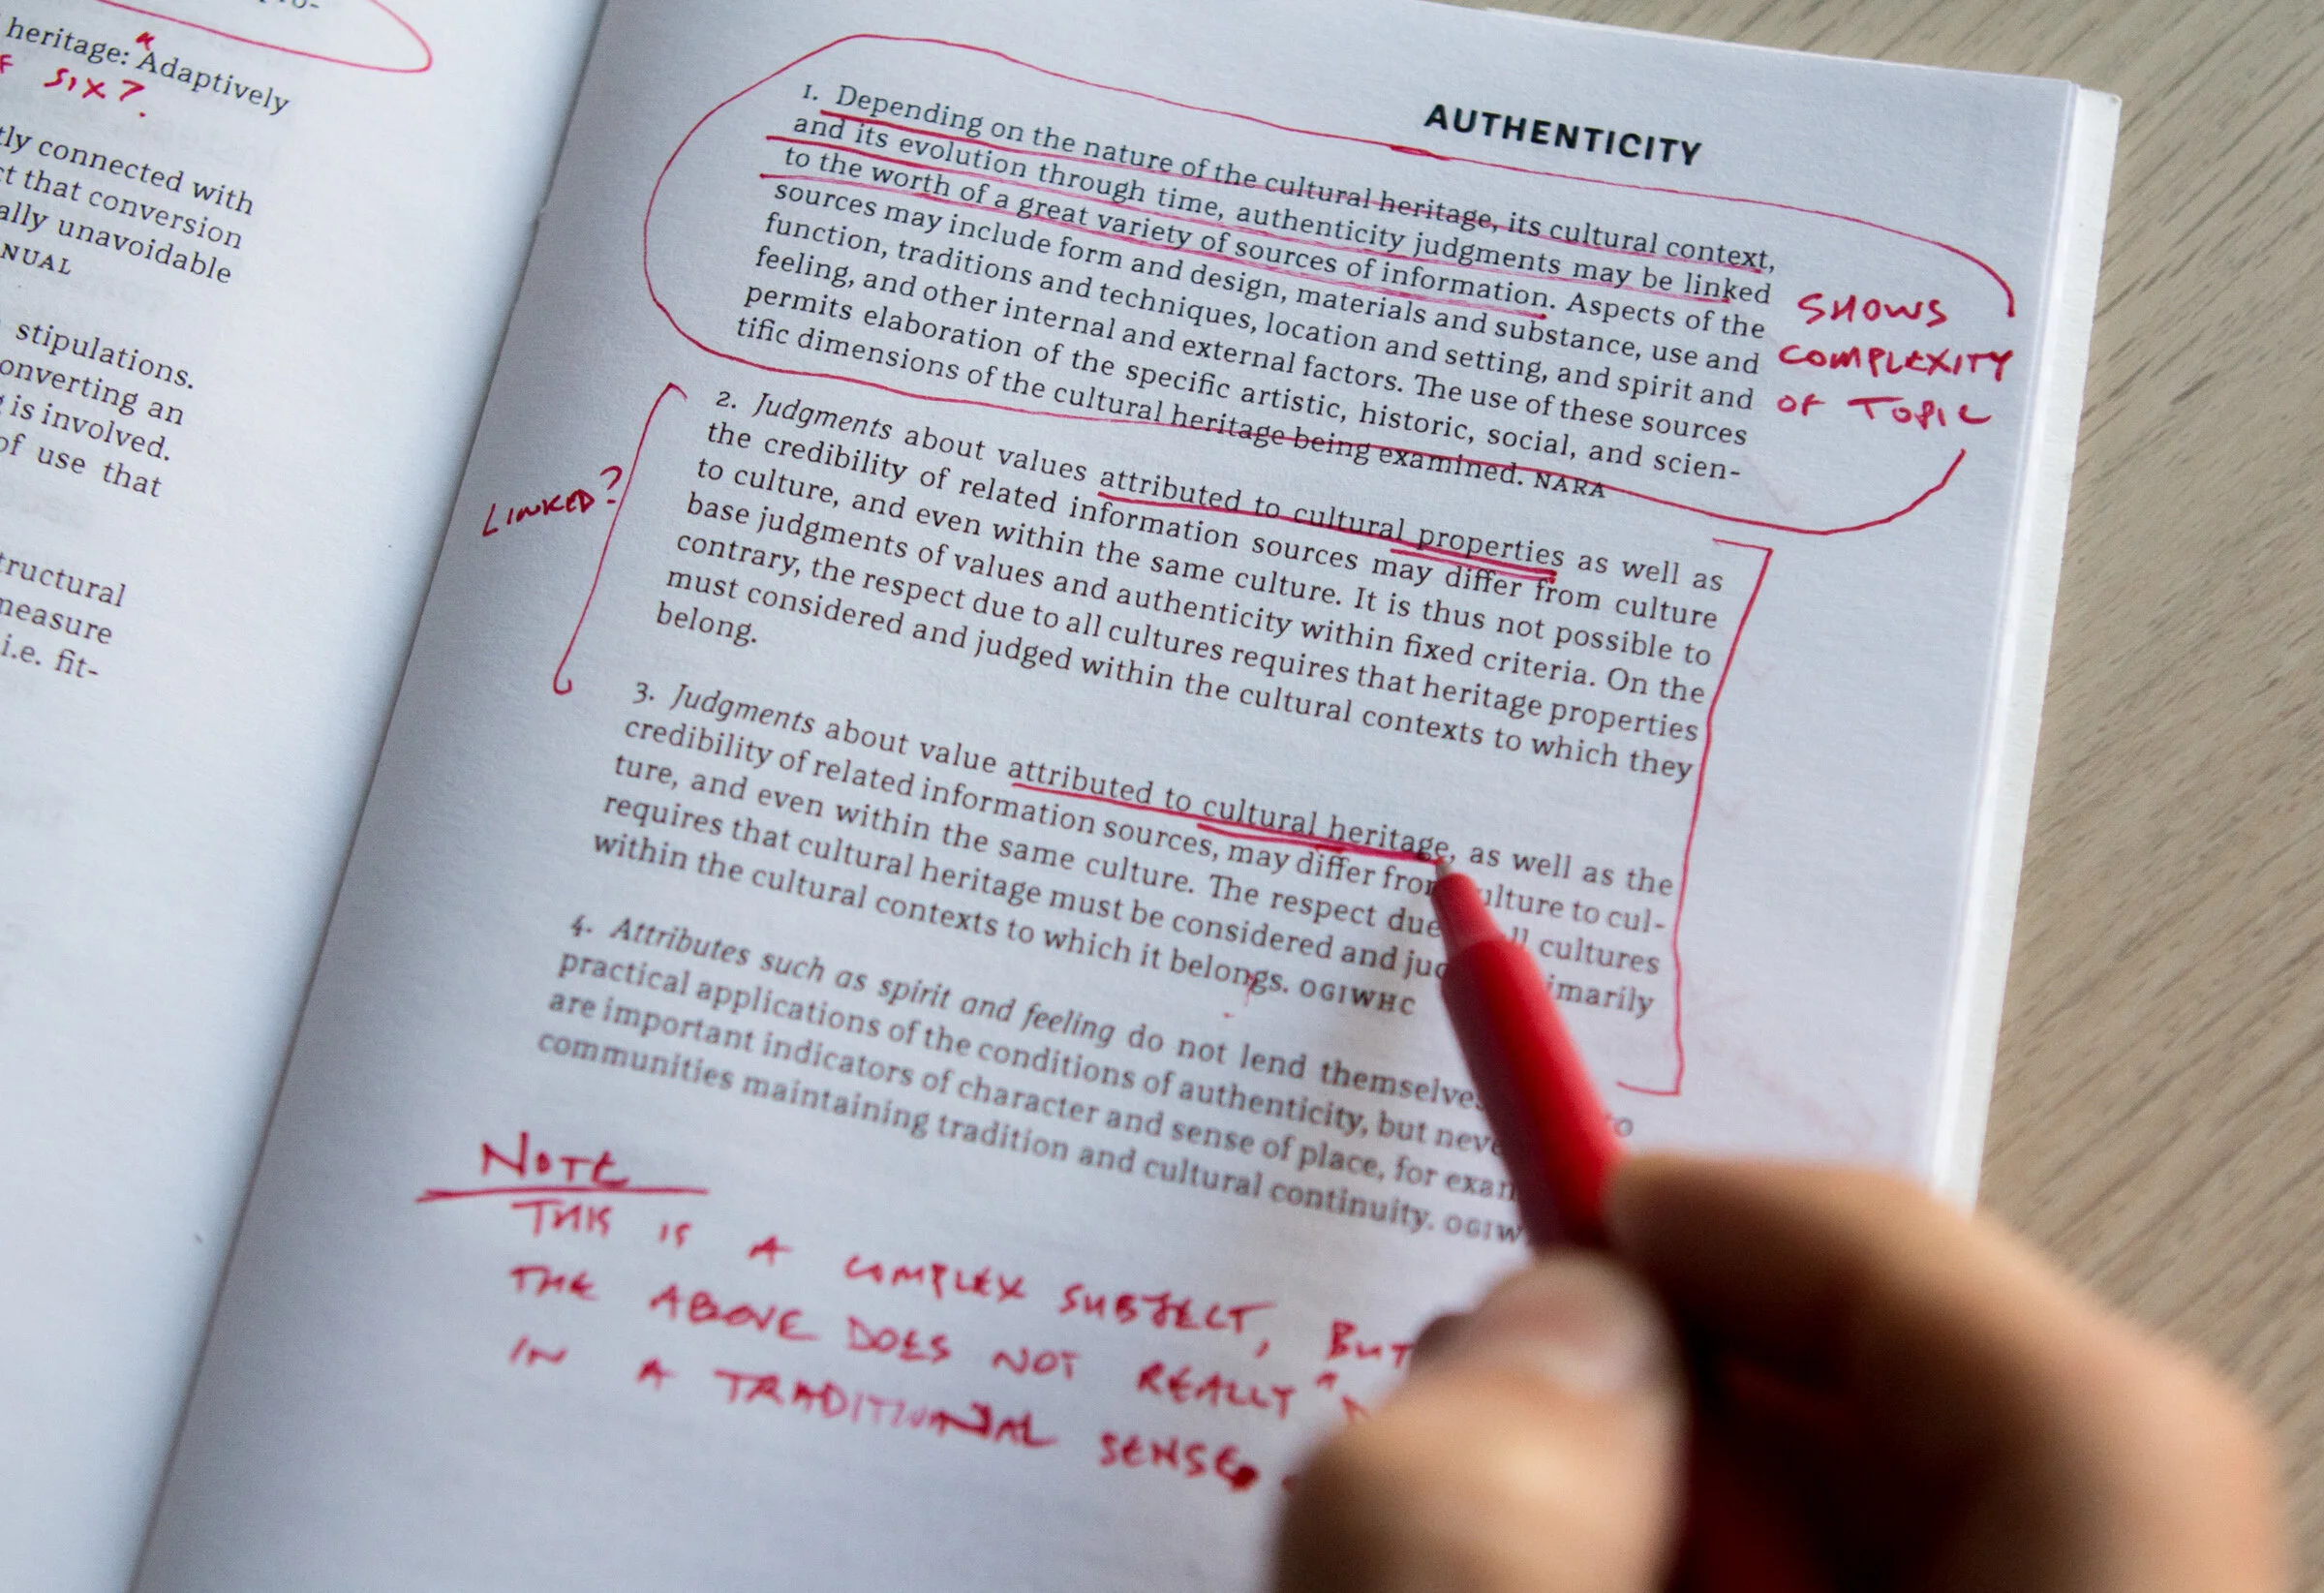 heritage: Adaptively
SIX?
tly connected with
ct that conversion
ally unavoidable
NUAL
stipulations.
onverting an
g is involved.
of use that
tructural
measure
i.e. fit-
AUTHENTICITY
1. Depending on the nature of the cultural heritage, its cultural context,
and its evolution through time, authenticity judgments may be linked
to the worth of a great variety of sources of information. Aspects of the
sources may include form and design, materials and substance, use and
function, traditions and techniques, location and setting, and spirit and
feeling, and other internal and external factors. The use of these sources
permits elaboration of the specific artistic, historic, social, and scien-
tific dimensions of the cultural heritage being examined. NARA
SHOWS
COMPLEXITY
OF TOPIC
LINKED?
2. Judgments about values attributed to cultural properties as well as
the credibility of related information sources may differ from culture
to culture, and even within the same culture. It is thus not possible to
base judgments of values and authenticity within fixed criteria. On the
contrary, the respect due to all cultures requires that heritage properties
must considered and judged within the cultural contexts to which they
belong.
3. Judgments about value attributed to cultural heritage, as well as the
credibility of related information sources, may differ from culture to cul-
ture, and even within the same culture. The respect due ll cultures
requires that cultural heritage must be considered and jud imarily
within the cultural contexts to which it belongs. OGIWHC
4. Attributes such as spirit and feeling do not lend themselves to
practical applications of the conditions of authenticity, but neve
are important indicators of character and sense of place, for exam
communities maintaining tradition and cultural continuity. OGIW
NOTE
THIS IS A COMPLEX SUBJECT, BUT
THE ABOVE DOES NOT REALLY "
IN A TRADITIONAL SENSE.